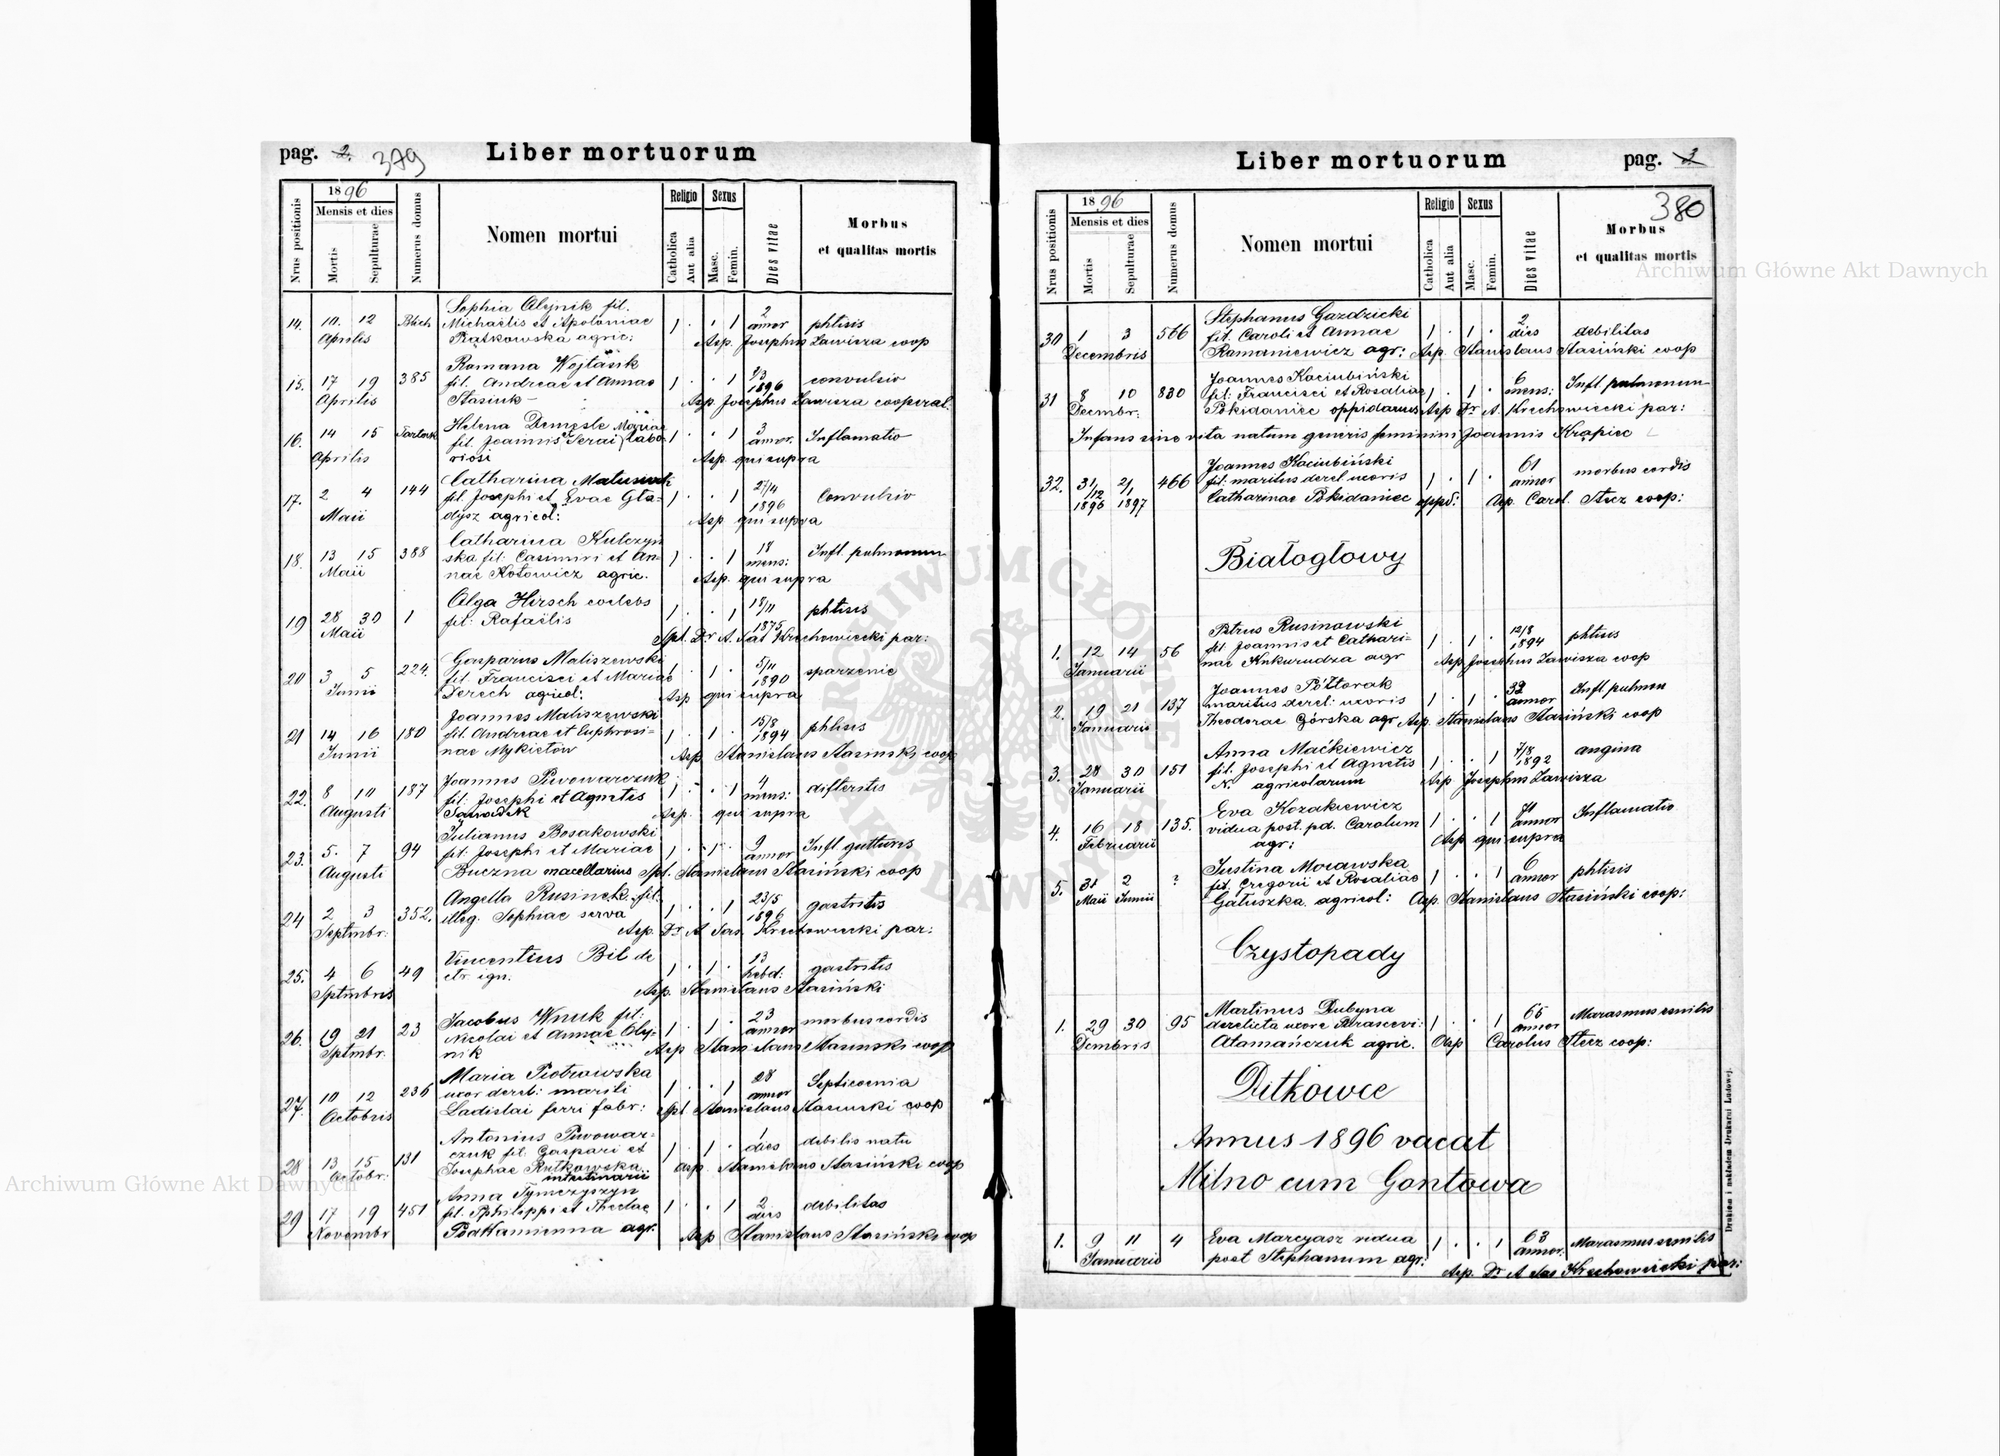 pag. 2. 379 Liber mortuorum
Nrus positionis
1896
Mensis et dies
Mortis
Sepulturae
Numerus domus
Nomen mortui
Religio
Catholica
Aut alia
Sexus
Masc.
Femin.
Dies vitae
Morbus
et qualitas mortis
Sophia Olejnik fil. 2
14. 10. 12 Blich Michaëlis et Apoloniae 1 . . 1 annor phtisis
Aprilis Ratkowska agric: Asp. Josephus Zawisza coop
Romana Wojtasik 1/3
15. 17 19 385 fil. Andreae et Annae 1 . . 1 1896 convulsio
Aprilis Stasiuk Asp Josephus Zawisza cooperat.
Helena Demesle Mariae 3
16. 14 15 fil. Joannis Serai labo 1 . . 1 annor. Inflamatio
Aprilis riosi Asp qui supra
Catharina 27/4
17. 2 4 144 fil. Josephi et Evae Gła- 1 . . 1 1896 Convulsio
Maii dysz agricol: Asp qui supra
Catharina Kulczyn 18
18. 13 15 388 ska fil. Casimiri et An- 1 . . 1 mens: Infl. pulmonum
Maii nae Kotowicz agric. Asp. qui supra
Olga Hirsch coelebs 18/11
19 28 30 1 fil. Rafaëlis 1 . . 1 1875 phtisis
Maii Spt. Dr A. Sas Krechowiecki par:
Gasparus Maliszewski 5/11
20 3 5 224. fil. Francisci et Mariae 1 . 1 . 1890 sparzenie
Junii Derech agricol: Asp qui supra
Joannes Maliszewski 15/8
21 14 16 180 fil. Andreae et Euphrosi- 1 . 1 . 1894 phtisis
Junii nae Mykietów Asp Stanislaus Stasinski coop
Joannes Piwowarczuk 4
22. 8 10 187 fil. Josephi et Agnetis 1 . . 1 mens: difteritis
Augusti Asp. qui supra
Julianus Bosakowski 9
23. 5. 7 94 fil. Josephi et Mariae 1 . 1 . annor Infl gutturis
Augusti Buczna macellarius Spt. Stanislaus Stasiński coop
Angella Rusinek fil. 23/5
24 2 3 352. illeg. Sophiae serva 1 . . 1 1896 gastritis
Septmbr. Asp. Dr A Sas. Krechowiecki par:
Vincentius Bil de 13
25. 4 6 49 ctr ign. 1 . 1 . hebd: gastritis
Sptmbris Asp. Stanislaus Stasiński
Jacobus Wnuk fil: 23
26. 19 21 23 Nicolai et Annae Oly- 1 . 1 . annor morbus cordis
Sptmbr. nik Asp Stanislaus Stasinski coop
Maria Piotrowska 28
27. 10 12 236 uxor derel: mariti 1 . . 1 annor Septicoemia
Octobris Ladislai ferri fabr: Spt Stanislaus Stasinski coop
Antonius Piwowar- 1
28 13 15 131 czuk fil. Gaspari et 1 . 1 . dies debilis natu
Octobr: Josephae Rutkowska Asp. Stanislaus Stasiński coop
Anna Tymczyszyn 2
29 17 19 451 fil. Philippi et Theclae 1 . . 1 dies debilitas
Novembr Podkamienna agr. Asp Stanislaus Stasiński coop
Liber mortuorum pag. 3
380
Nrus positionis
1896
Mensis et dies
Mortis
Sepulturae
Numerus domus
Nomen mortui
Religio
Catholica
Aut alia
Sexus
Masc.
Femin.
Dies vitae
Morbus
et qualitas mortis
Stephanus Gazdzicki 2
30 1 3 566 fil. Caroli et Annae 1 . 1 . dies debilitas
Decembris Romaniewicz agr: Asp. Stanislaus Stasiński coop
Joannes Kociubiński 6
31 8 10 830 fil: Francisci et Rosaliae 1 . 1 . mens: Infl. pulmonum
Decmbr: Pokidaniec oppidanus Asp Dr A. Krechowiecki par:
Infans sine vita natum generis feminini Joannis Krąpiec
Joannes Kociubiński 61
32. 31/12 2/1 466 fil: maritus derel uxoris 1 . 1 . annor morbus cordis
1896 1897 Catharinae Pokidaniec oppd: Asp. Carol. Stecz coop:
Białogłowy
Petrus Rusinowski 12/8
1. 12 14 56 fil Joannis et Cathari- 1 . 1 . 1894 phtisis
Januarii nae Kukurudza agr Asp Josephus Zawisza coop
Joannes Półtorak 32
2. 19 21 137 maritus derel: uxoris 1 . 1 . annor Infl pulmon
Januarii Theodorae Górska agr Asp. Stanislaus Stasiński coop
Anna Maćkiewicz 7/8
3. 28 30 151 fil. Josephi et Agnetis 1 . . 1 1892 angina
Januarii N. agricolarum Asp Josephus Zawisza
Eva Kozakiewicz
4. 16 18 135. vidua post. pd. Carolum 1 . . 1 annor Inflamatio
Februarii agr: Asp qui supra
Justina Morawska 6
5. 31 2 ? fil. Gregorii et Rosaliae 1 . . 1 annor phtisis
Maii Junii Gałuszka agricol: Asp. Stanislaus Stasiński coop:
Czystopady
Martinus Dubyna 65
1. 29 30 95 derelicta uxore Parascevi: 1 . . 1 annor Marasmus senilis
Dcmbris Atamańczuk agric. Asp Carolus Stecz coop:
Ditkowce
Annus 1896 vacat
Milno cum Gontowa
1. 9 11 4 Eva Marcyasz vidua 1 . . 1 68 annor. Marasmus senilis
Januarii post Stephanum agr: Asp. Dr A Sas Krechowiecki par:
Drukiem i nakładem Drukarni Ludowej.
Archiwum Główne Akt Dawnych
Archiwum Główne Akt Dawnych
ARCHIWUM GŁÓWNE AKT DAWNYCH